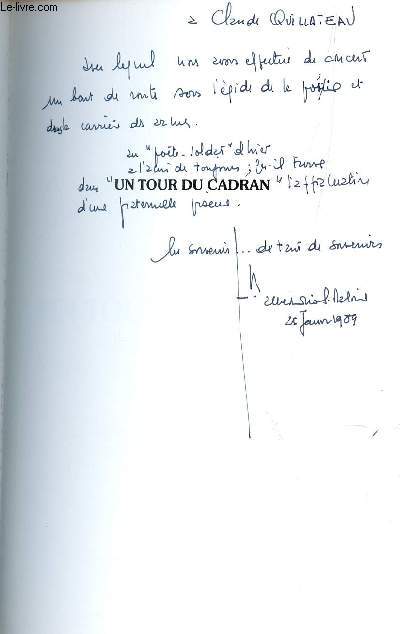 Le-livre.com
à Claude QUILLATEAU
avec lequel nous avons effectué de concert
un bout de route sous l'égide de la poésie et
de la carrière des armes.
au "poète-soldat" d'hier
à l'ami de toujours; qu'il trouve
dans "UN TOUR DU CADRAN" l'affirmation
d'une fraternelle pensée.
En souvenir... de tant de souvenirs
25 Janv 1989